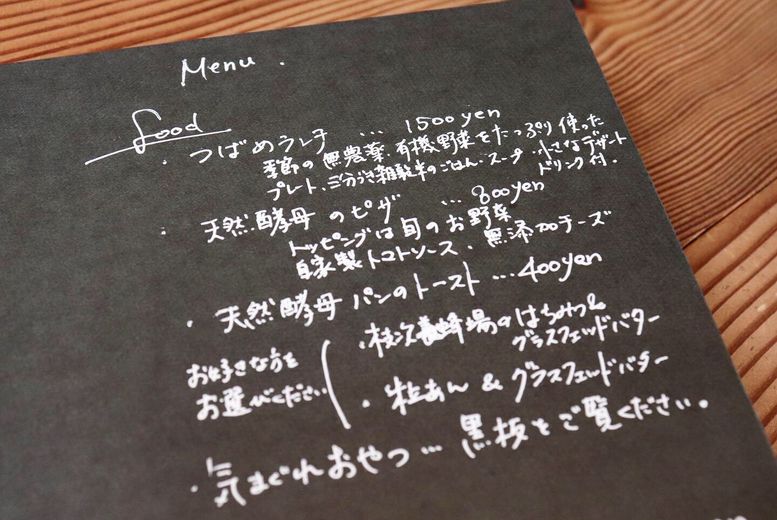 Menu.
food
・つばめランチ … 1500yen
季節の無農薬、有機野菜をたっぷり使った
プレート、三分づき雑穀米のごはん・スープ・小さなデザート
ドリンク付.
・天然酵母のピザ … 800yen
トッピングは旬のお野菜
自家製トマトソース・無添加チーズ
・天然酵母パンのトースト … 400yen
お好きな方を
お選びください
・養蜂場のはちみつ&
グラスフェッドバター
・粒あん & グラスフェッドバター
・気まぐれおやつ … 黒板をご覧ください。